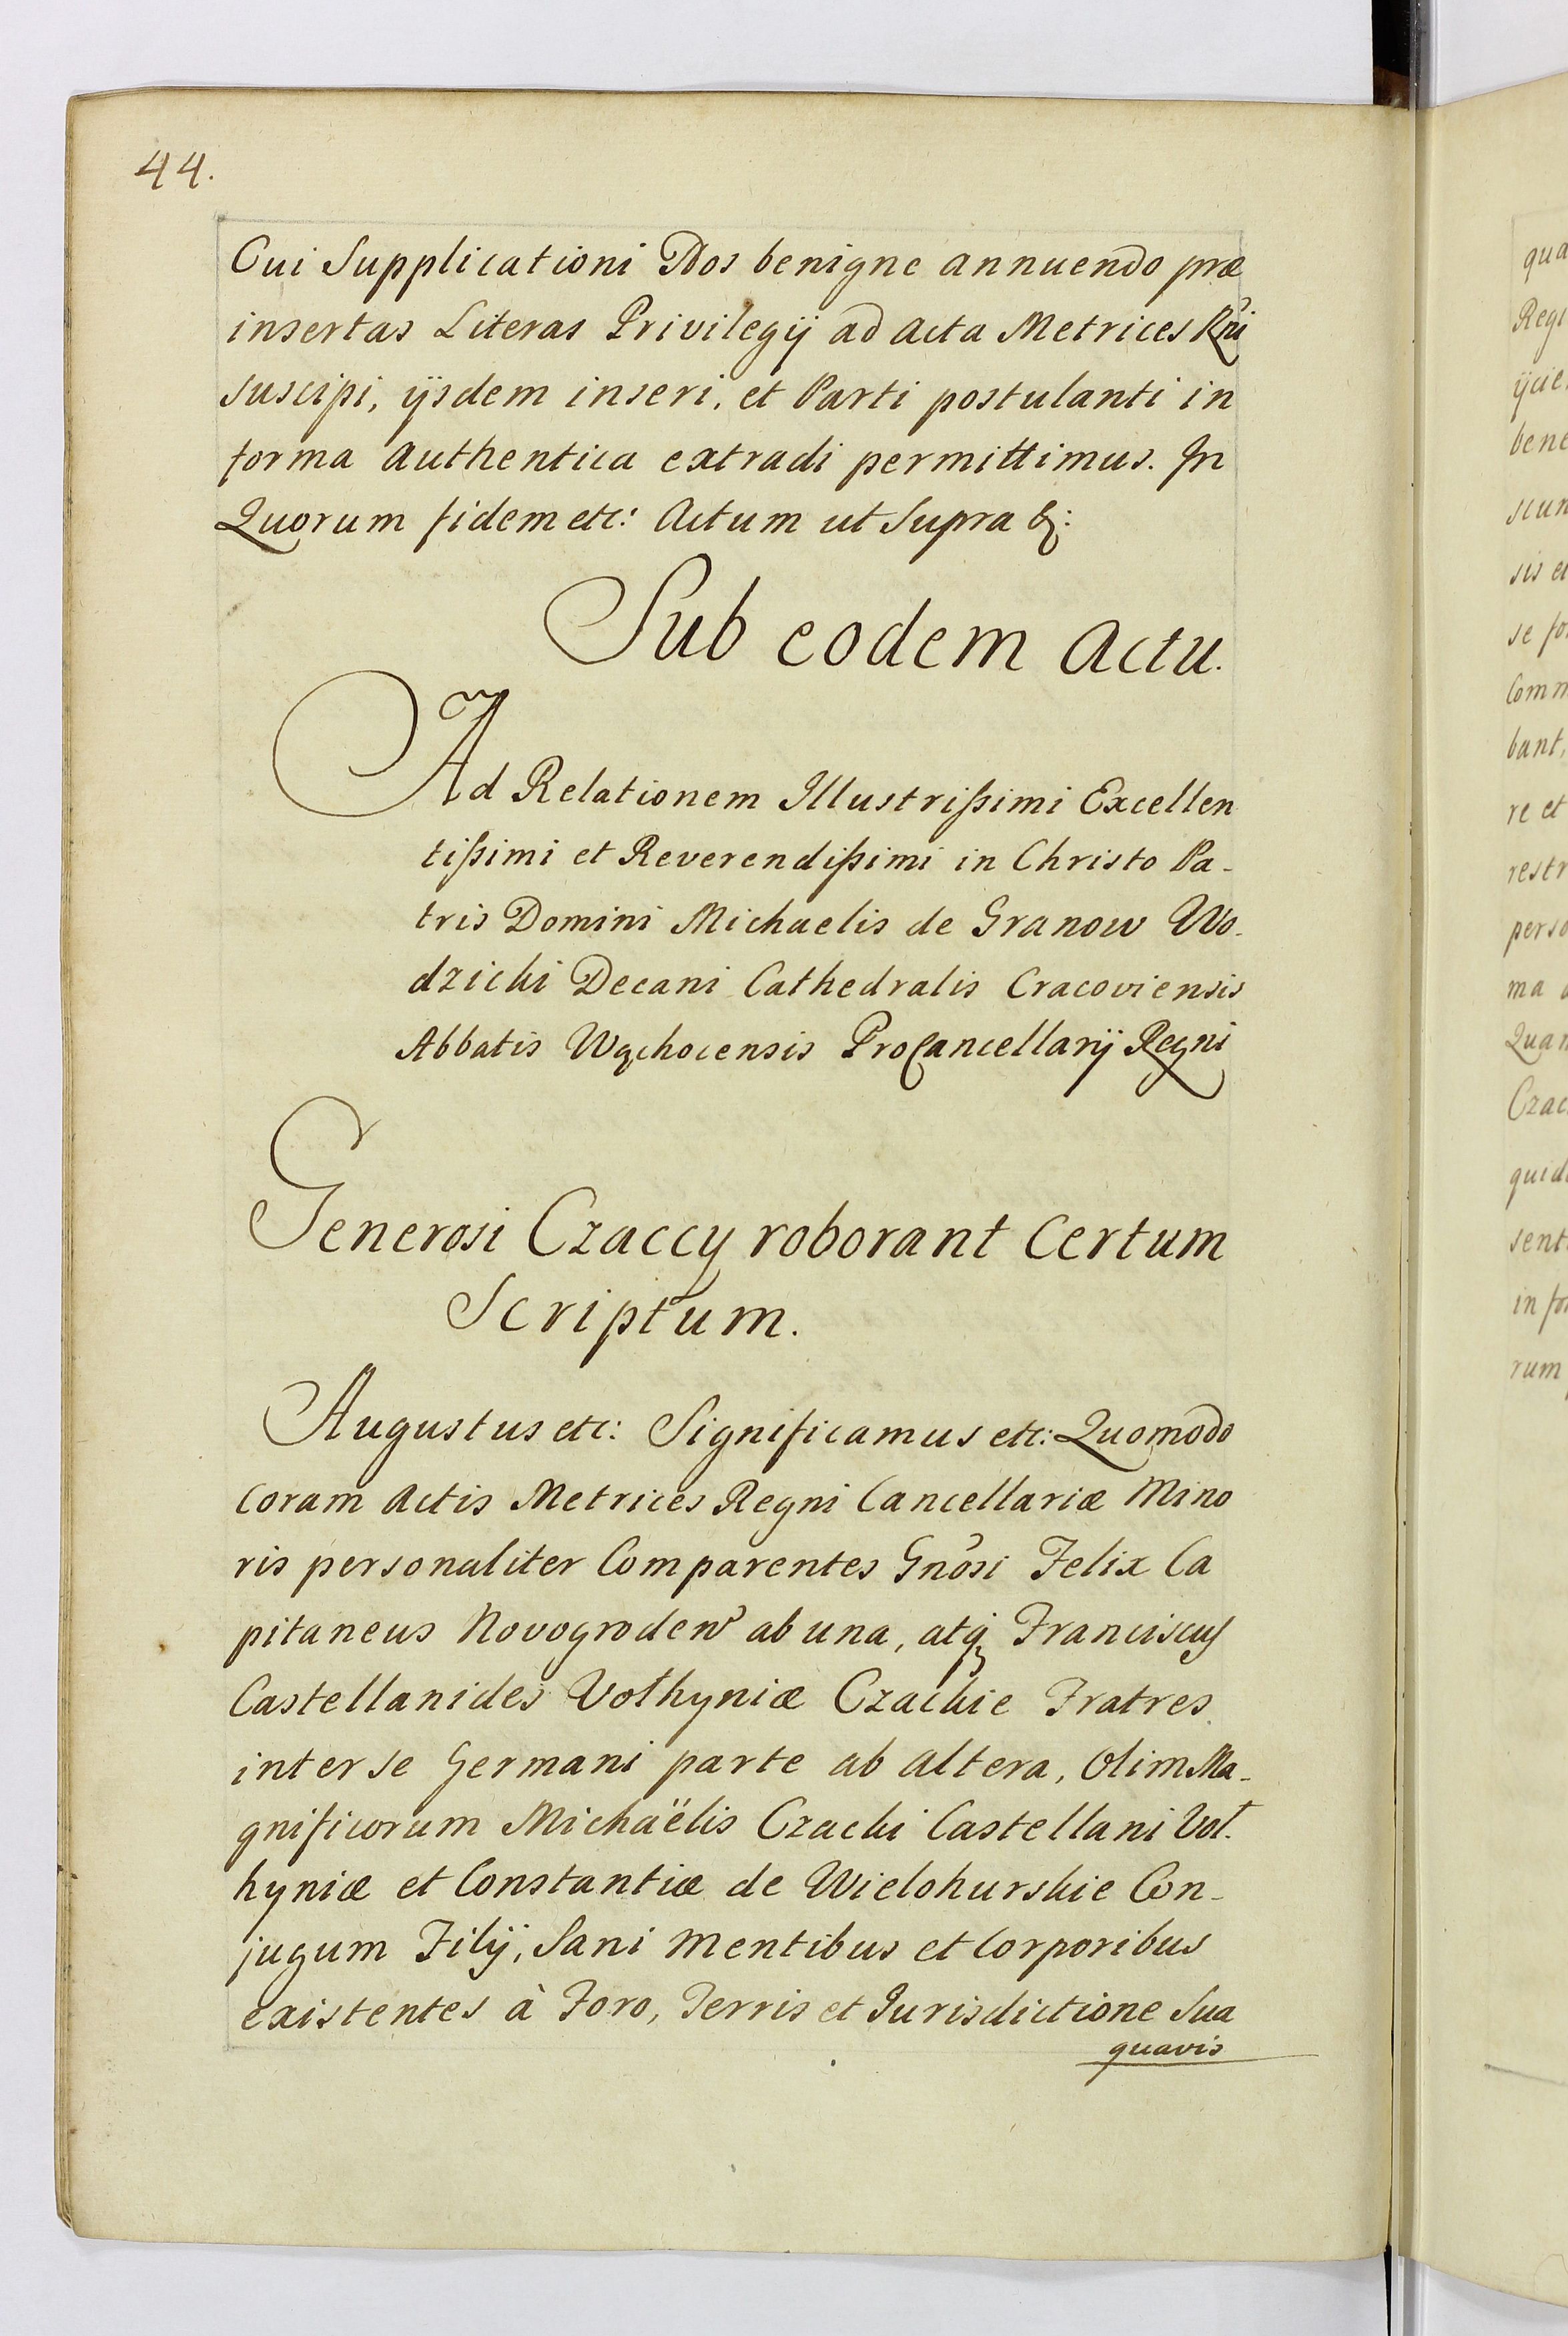 44.
Cui Supplicationi Nos benigne annuendo præ
insertas Literas Privilegij ad acta Metrices Rni
suscipi, ijsdem inseri, et Parti postulanti in
forma authentica extradi permittimus. In
Quorum fidem etc: Actum ut Supra &:
Sub eodem Actu.
Ad Relationem Illustrißimi Excellen
tißimi et Reverendißimi in Christo Pa-
tris Domini Michaelis de Granow Wo-
dzicki Decani Cathedralis Cracoviensis
Abbatis Wąchocensis ProCancellarij Regni
Generosi Czaccy roborant Certum
Scriptum.
Augustus etc: Significamus etc: Quomodo
Coram Actis Metrices Regni Cancellariæ Mino
ris personaliter Comparentes Gnosi Felix Ca
pitaneus Novogroden ab una, atq Franciscus
Castellanides Vołhyniæ Czackie Fratres
inter se Germani parte ab altera, Olim Ma-
gnificorum Michaëlis Czacki Castellani Voł-
hyniæ et Constantiæ de Wielohurskie Con-
jugum Filij, Sani Mentibus et Corporibus
existentes à Foro, Terris et Jurisdictione Sua
quavis
qua
Regi
ijcie
bene
scun
sis et
se fo
Comm
bant,
re et
restr
perso
ma
Quan
Czac
quid
sent
in fo
rum